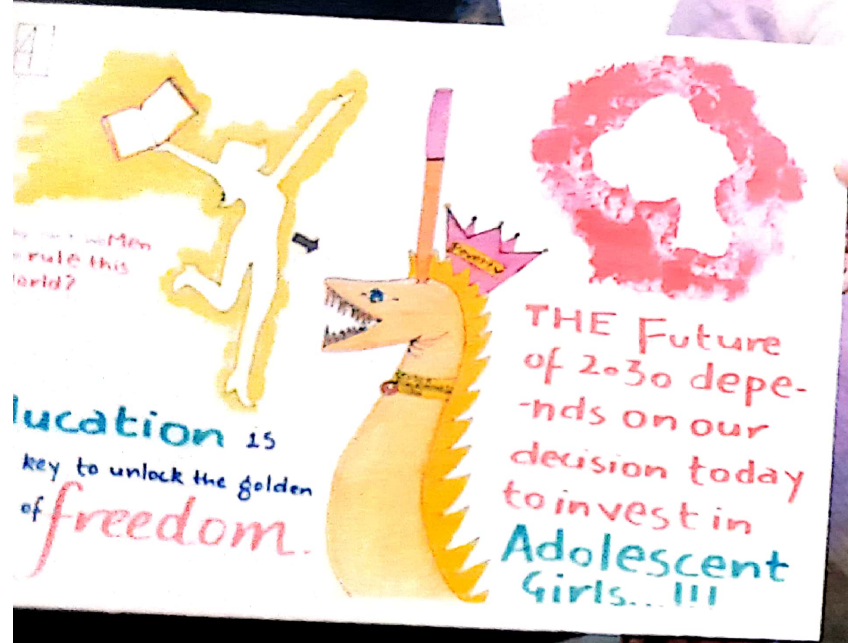 woMen
rule this
world?
ducation is
key to unlock the golden
of freedom.
Poverty
THE Future
of 2030 depe-
-nds on our
decision today
to invest in
Adolescent
Girls...!!!